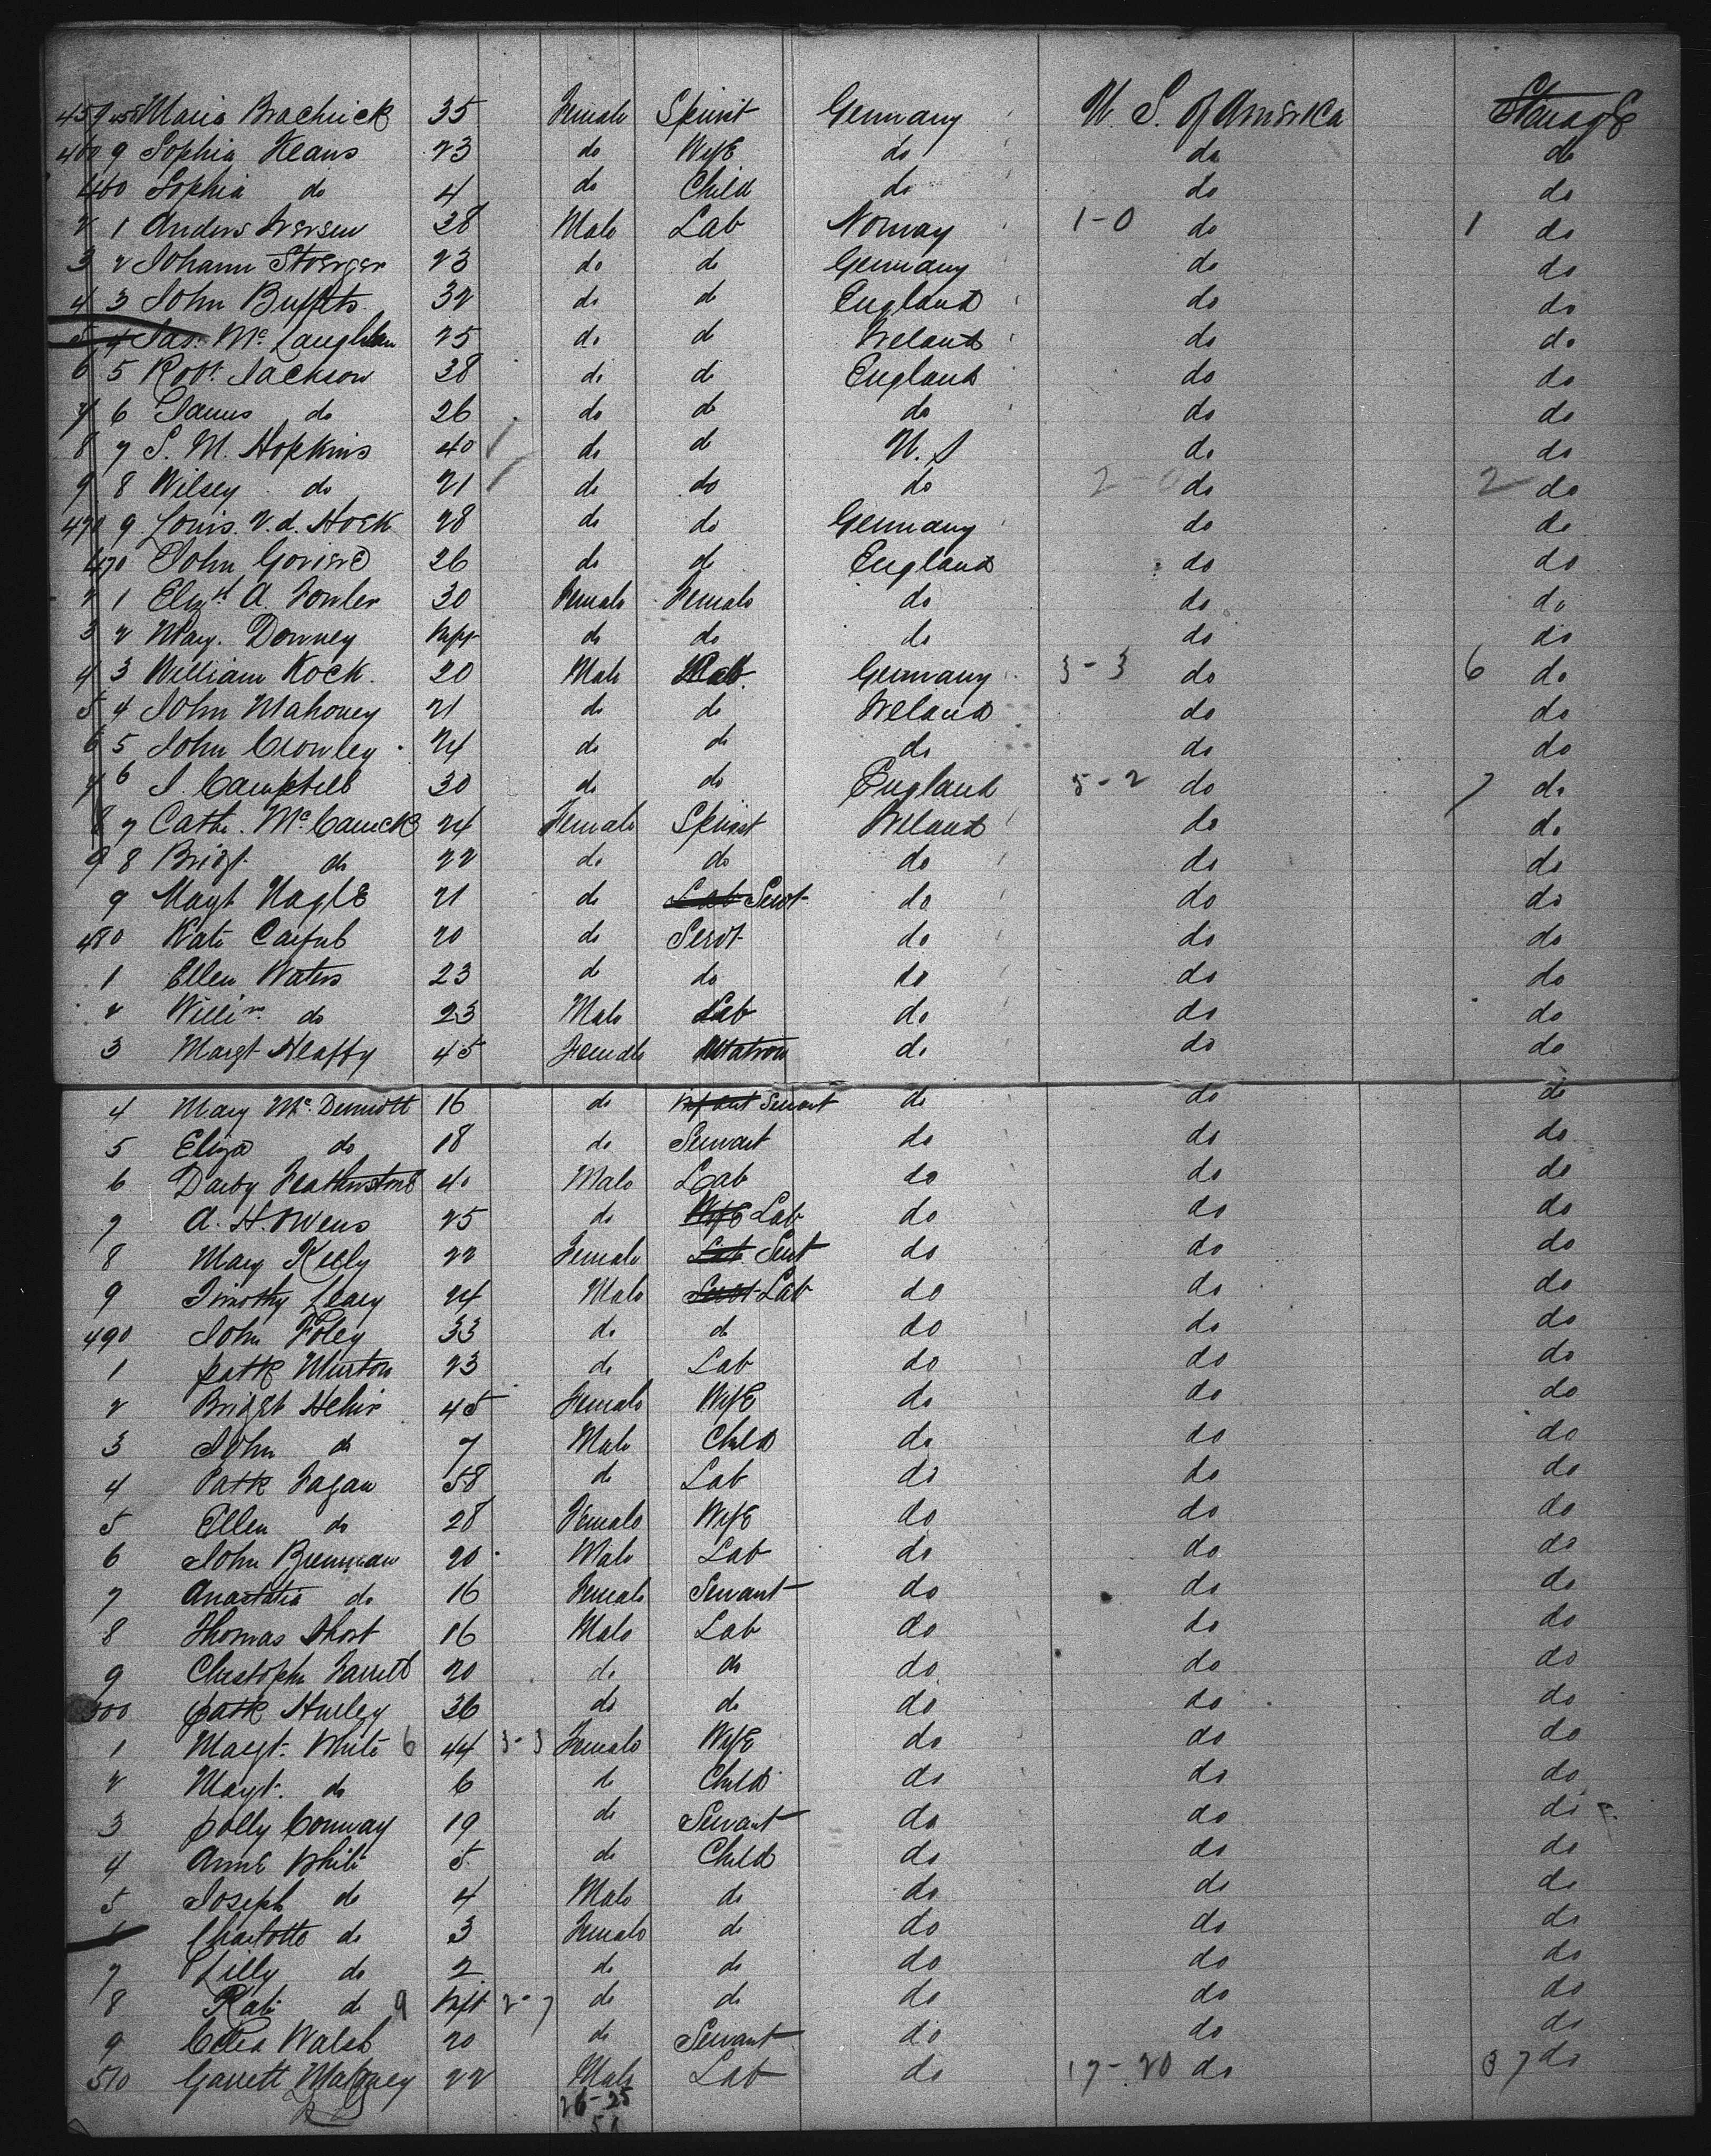 459 458 Maria Brachrick 35 Female Spinst Germany U. S. of America Steerage
460 9 Sophia Keans 23 do Wife do do do
460 Sophia do 4 do Child do do do
2 1 Anders Iversen 38 Male Lab Norway 1-0 do 1 do
3 2 Johann Stoerger 23 do do Germany do do
4 3 John Buffets 32 do do England do do
5 4 Jas. Mc Laughlan 25 do do Ireland do do
6 5 Robt. Jackson 38 do do England do do
7 6 James do 26 do do do do do
8 7 S. M. Hopkins 40 do do U. S do do
9 8 Wilsey do 21 do do do 2-0 do 2 do
470 9 Louis. V. d. Hoek 28 do do Germany do do
470 John 26 do do England do do
2 1 Elizth A. Fowler 30 Female Female do do do
3 2 Mary. Downey Infr do do do do do
4 3 William Kock. 20 Male Lab. Germany 3-3 do 6 do
5 4 John Mahoney 21 do do Ireland do do
6 5 John Crowley 24 do do do do do
7 6 J. Campbell 30 do do England 5-2 do 7 do
8 7 Cathe. 24 Female Spinst Ireland do do
9 8 Bridgt. do 22 do do do do do
9 Magt Nagle 21 do Lab Servt do do do
480 Kate 20 do Servt do do do
1 Ellen Waters 23 do do do do do
2 Willim do 23 Male Lab do do do
3 Margt Heaffy 45 Female Matron do do do
4 Mary Mc. Dermott 16 do Infant Servant do do do
5 Eliza do 18 do Servant do do do
6 Darby Featherstone 40 Male Lab do do do
7 A. H. Owens 25 do Wife Lab do do do
8 Mary Kelly 22 Female Lab. Sert do do do
9 Timothy Leary 24 Male Servt Lab do do do
490 John Foley 33 do do do do do
1 Patk Murton 23 do Lab do do do
2 Bridgt Hehir 45 Female Wife do do do
3 John do 7 Male Child do do do
4 Patk Fagan 58 do Lab do do do
5 Ellen do 28 Female Wife do do do
6 John Brennan 20 Male Lab do do do
7 Anastatia do 16 Female Servant do do do
8 Thomas Short 16 Male Lab do do do
9 Christophr Farrell 20 do do do do do
500 Patk Hurley 36 do do do do do
1 Margt. White 6 44 3-3 Female Wife do do do
2 Margt. do 6 do Child do do do
3 Polly Conway 19 do Servant do do do
4 Anne White 5 do Child do do do
5 Joseph do 4 Male do do do do
6 Charlotte do 3 Female do do do do
7 Lilly do 2 do do do do do
8 Kate do 9 Inft 2-7 do do do do do
9 Celia Walsh 20 do Servant do do do
510 Garrett Mahoney 22 Male Lab do 17-20 do 37 do
26-25
51